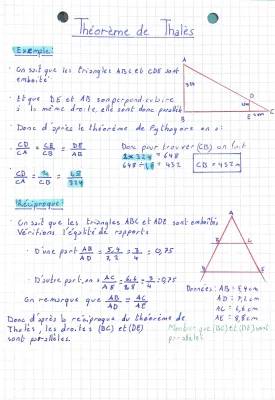 Théorème de Thalès
Exemple:
• On sait que les triangles ABC et CDE sont
emboîté.
• Et que DE et AB son perpendiculaire
à la même droite elle sont donc parallèle
• Donc d'après le théorème de Pythagore on a:
CD/CA = CE/CB = DE/AB
Donc pour trouver (CB) on fait
= 648
CB = 432m
CD/CA = /CB =
A
D
B
E
C
Réciproque:
• On sait que les triangles ABC et ADE sont emboîtés
Vérifions l'égalité de rapports
• D'une part AB/AD = 5,4/7,2 = 3/4 = 0,75
• D'autre part, on a AC/AE = 6,6/8,8 = 3/4 = 0,75
On remarque que AB/AD = AC/AE
Donc d'après la réciproque du théorème de
Thalès, les droites (BC) et (DE)
sont parallèles.
A
B
C
E
Données: AB = 5,4cm
AD = 7,2 cm
AC = 6,6 cm
AE = 8,8cm
Montrer que (BC) et (DE) sont
parallèles